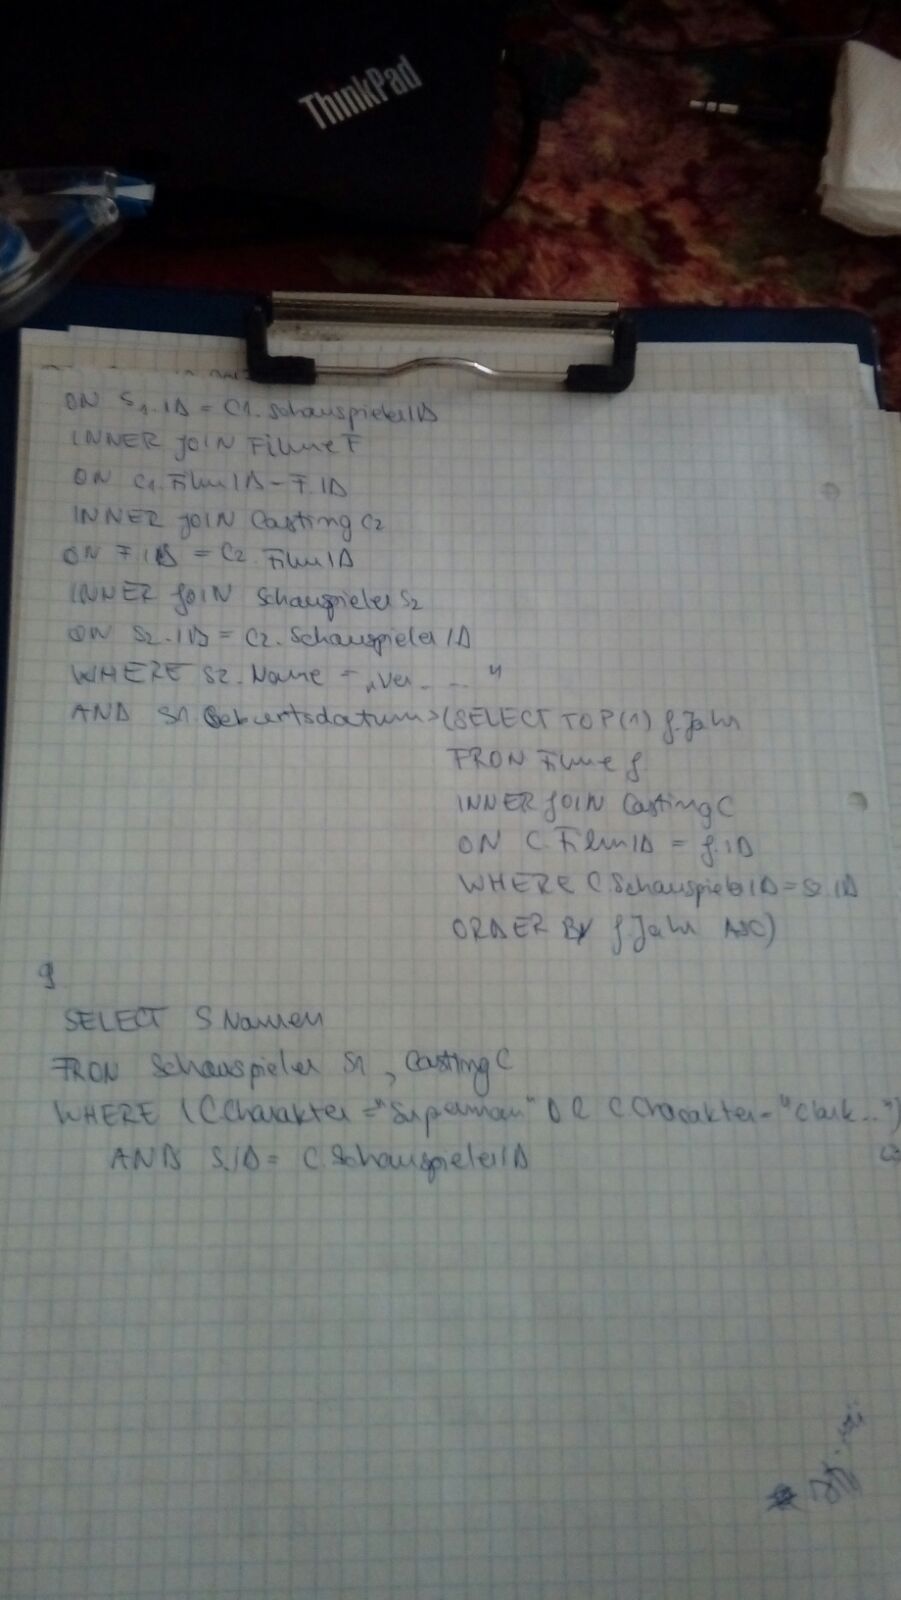 ThinkPad
ON S1.ID = C1.SchauspielerID
INNER JOIN Filme F
ON C1.FilmID = F.ID
INNER JOIN Casting C2
ON F.ID = C2.FilmID
INNER JOIN Schauspieler S2
ON S2.ID = C2.SchauspielerID
WHERE S2.Name = „Ver... ..."
AND S1.Geburtsdatum > (SELECT TOP(1) f.Jahr
FROM Filme f
INNER JOIN Casting C
ON C.FilmID = f.ID
WHERE C.SchauspielerID = S2.ID
ORDER BY f.Jahr ASC)
g
SELECT S.Namen
FROM Schauspieler S1, Casting C
WHERE (C.Charakter = "Superman" OR C.Charakter = "Clark...")
AND S.ID = C.SchauspielerID